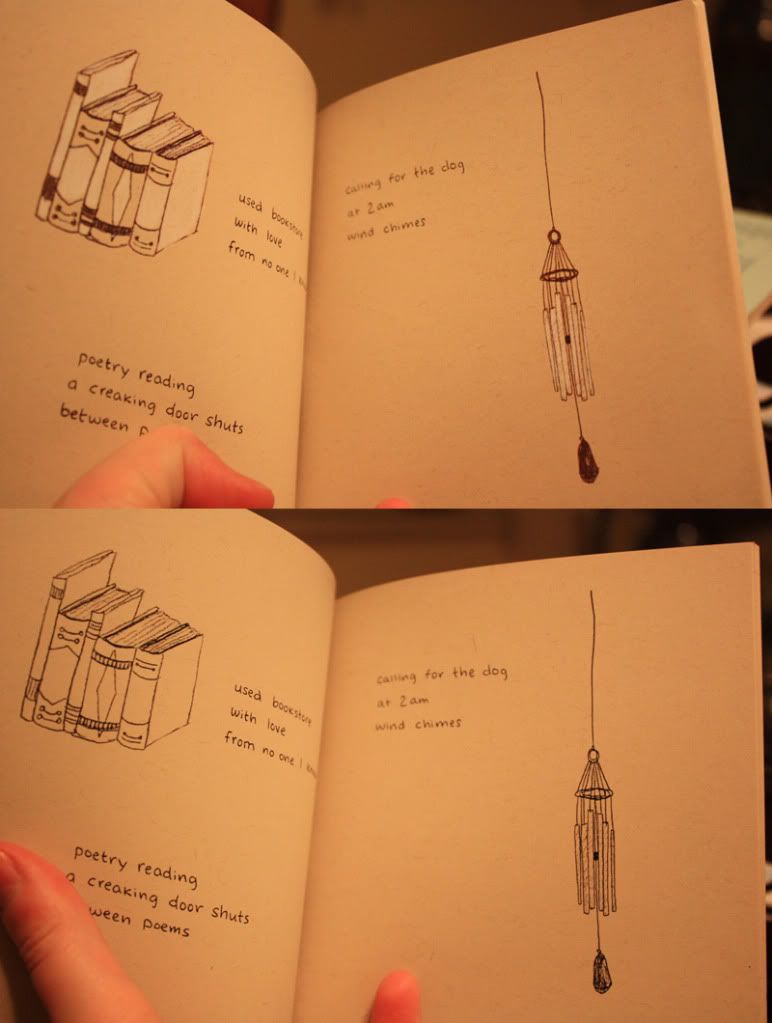 used bookstore
with love
from no one I
poetry reading
a creaking door shuts
between
calling for the dog
at 2am
wind chimes
used bookstore
with love
from no one I
poetry reading
a creaking door shuts
ween poems
calling for the dog
at 2am
wind chimes